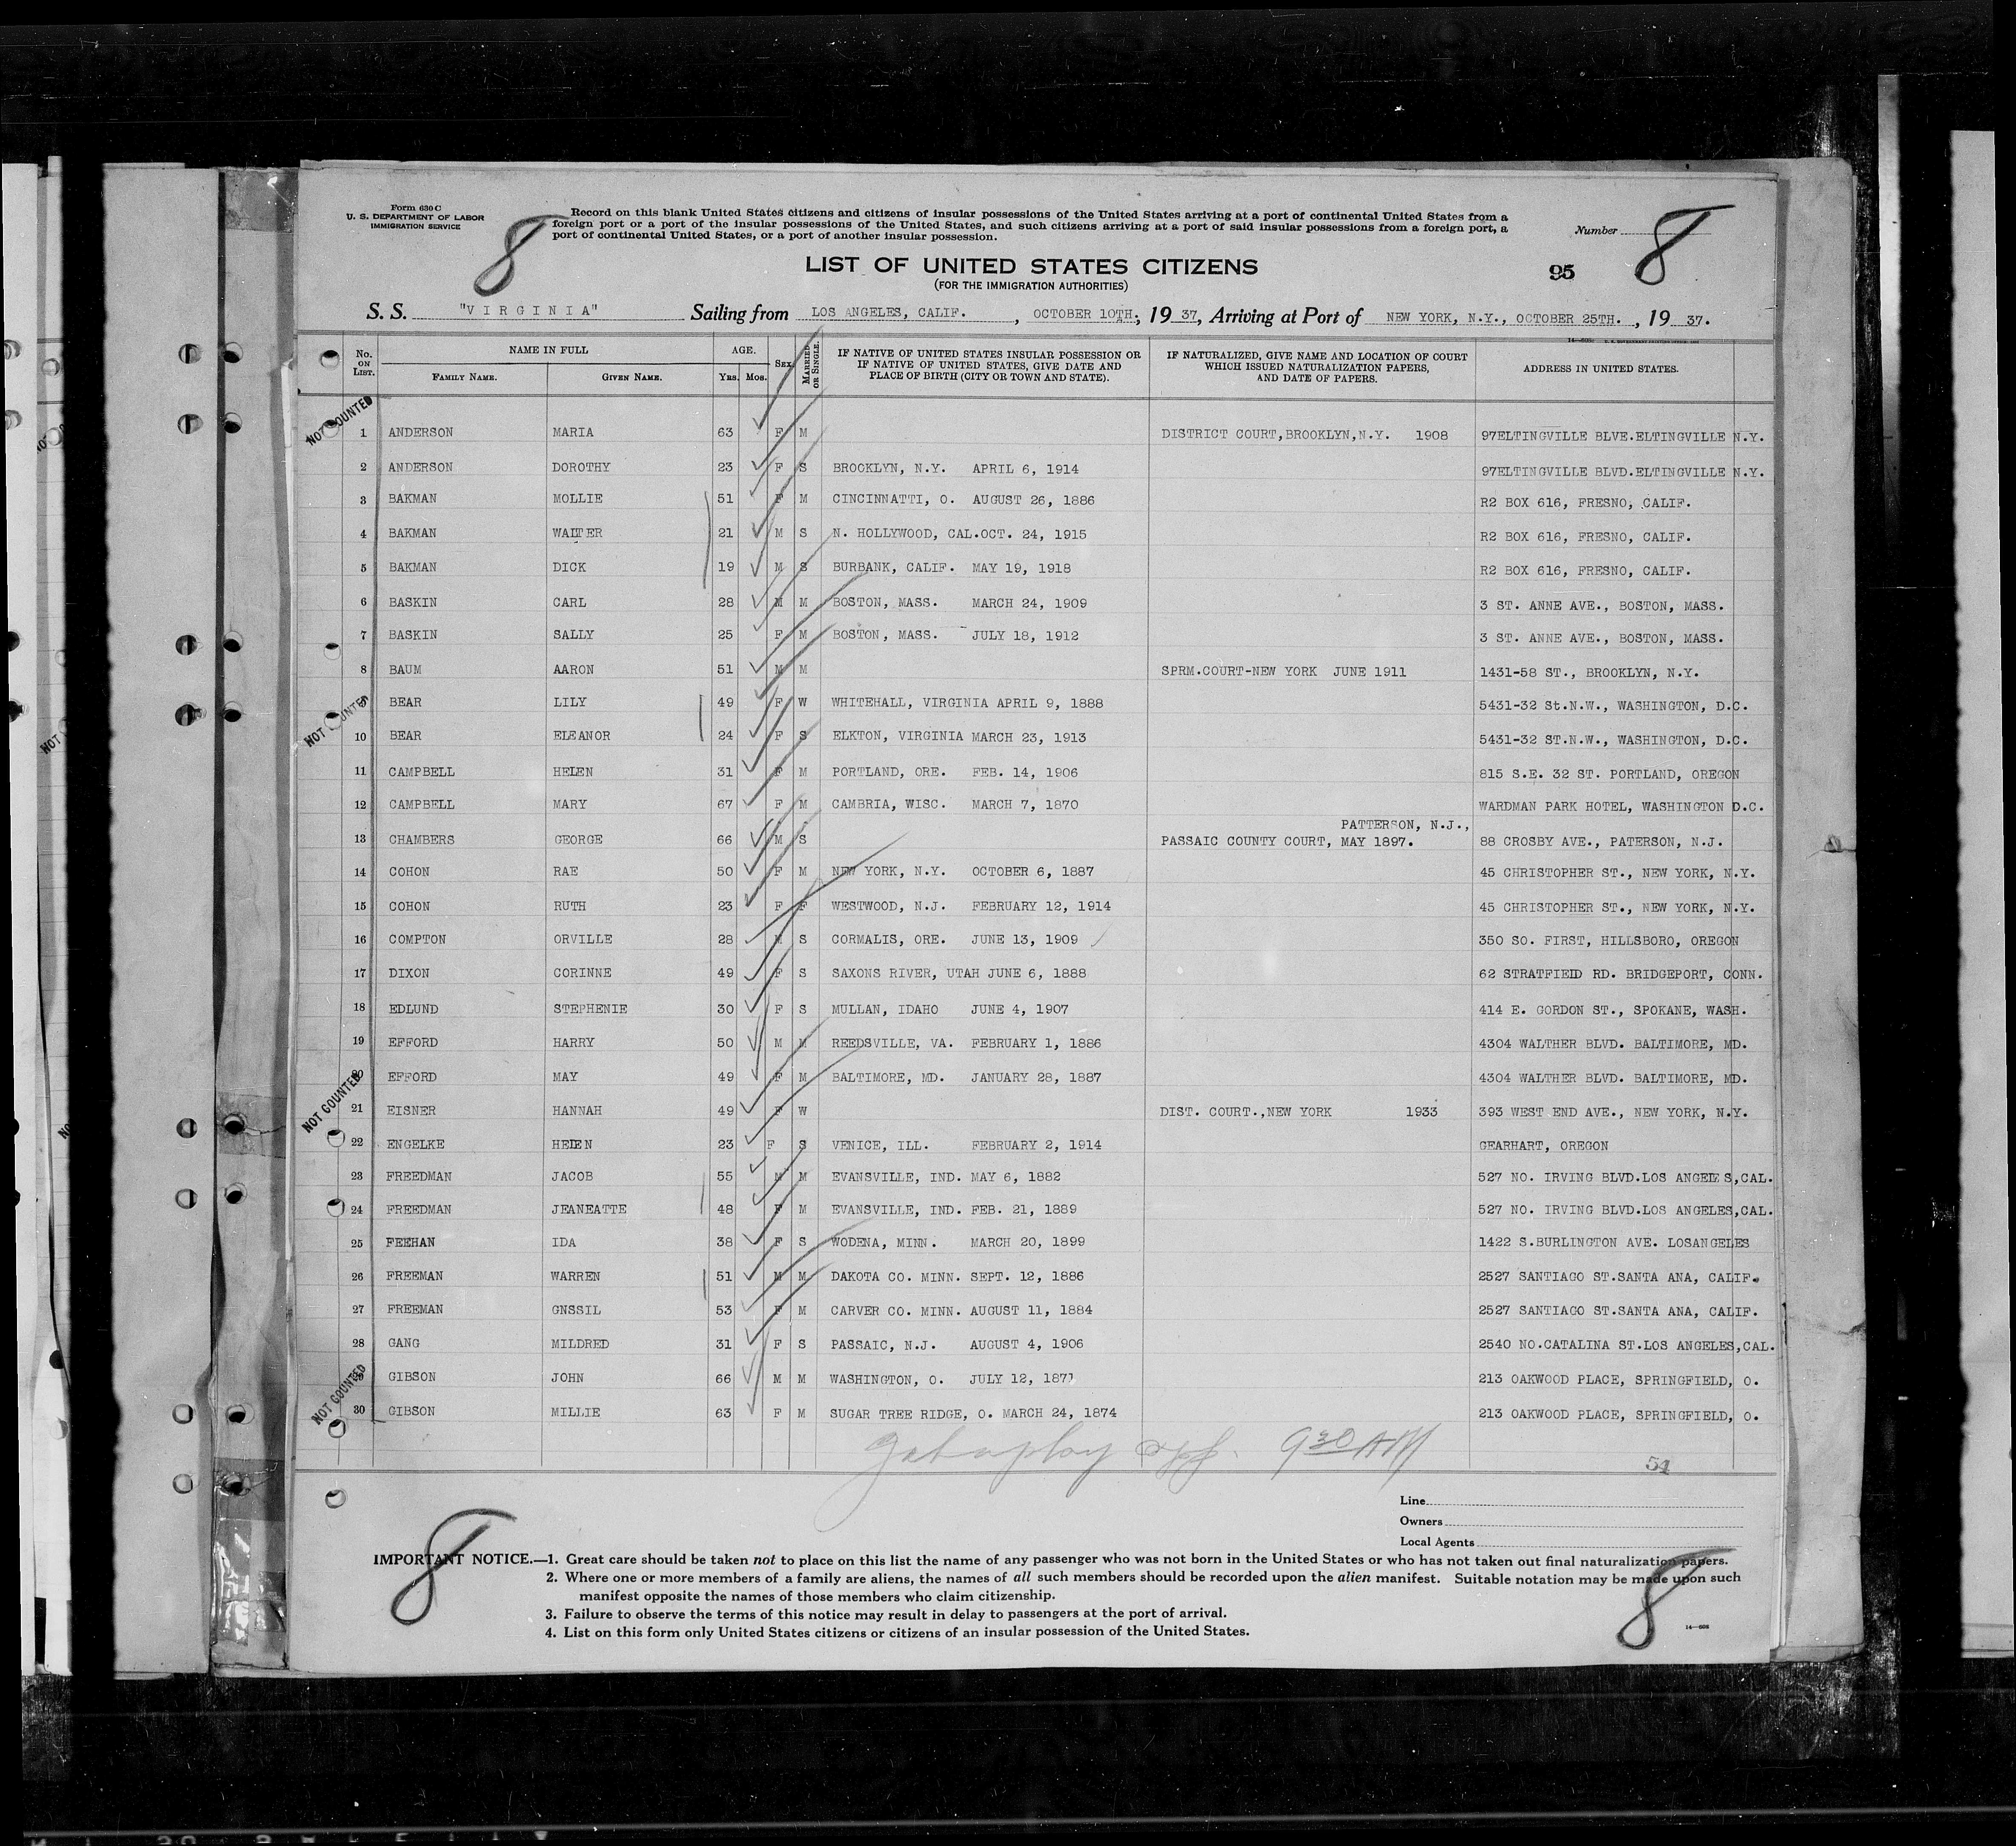 Form 630 C
U. S. DEPARTMENT OF LABOR
IMMIGRATION SERVICE
8
Record on this blank United States citizens and citizens of insular possessions of the United States arriving at a port of continental United States from a
foreign port or a port of the insular possessions of the United States, and such citizens arriving at a port of said insular possessions from a foreign port, a
port of continental United States, or a port of another insular possession.
Number 8
LIST OF UNITED STATES CITIZENS
95
(FOR THE IMMIGRATION AUTHORITIES)
S. S. "VIRGINIA" Sailing from LOS ANGELES, CALIF. , OCTOBER 10TH; 19 37, Arriving at Port of NEW YORK, N.Y., OCTOBER 25TH. , 19 37.
No. ON LIST. NAME IN FULL FAMILY NAME. GIVEN NAME. AGE. YRS. MOS. SEX MARRIED OR SINGLE. IF NATIVE OF UNITED STATES INSULAR POSSESSION OR IF NATIVE OF UNITED STATES, GIVE DATE AND PLACE OF BIRTH (CITY OR TOWN AND STATE). IF NATURALIZED, GIVE NAME AND LOCATION OF COURT WHICH ISSUED NATURALIZATION PAPERS, AND DATE OF PAPERS. ADDRESS IN UNITED STATES.
NOT COUNTED
1 ANDERSON MARIA 63 F M DISTRICT COURT,BROOKLYN,N.Y. 1908 97ELTINGVILLE BLVE.ELTINGVILLE N.Y.
2 ANDERSON DOROTHY 23 F S BROOKLYN, N.Y. APRIL 6, 1914 97ELTINGVILLE BLVD.ELTINGVILLE N.Y.
3 BAKMAN MOLLIE 51 F M CINCINNATTI, O. AUGUST 26, 1886 R2 BOX 616, FRESNO, CALIF.
4 BAKMAN WALTER 21 M S N. HOLLYWOOD, CAL.OCT. 24, 1915 R2 BOX 616, FRESNO, CALIF.
5 BAKMAN DICK 19 M S BURBANK, CALIF. MAY 19, 1918 R2 BOX 616, FRESNO, CALIF.
6 BASKIN CARL 28 M M BOSTON, MASS. MARCH 24, 1909 3 ST. ANNE AVE., BOSTON, MASS.
7 BASKIN SALLY 25 F M BOSTON, MASS. JULY 18, 1912 3 ST. ANNE AVE., BOSTON, MASS.
8 BAUM AARON 51 M M SPRM.COURT-NEW YORK JUNE 1911 1431-58 ST., BROOKLYN, N.Y.
9 BEAR LILY 49 F W WHITEHALL, VIRGINIA APRIL 9, 1888 5431-32 St.N.W., WASHINGTON, D.C.
NOT COUNTED
10 BEAR ELEANOR 24 F S ELKTON, VIRGINIA MARCH 23, 1913 5431-32 ST.N.W., WASHINGTON, D.C.
11 CAMPBELL HELEN 31 F M PORTLAND, ORE. FEB. 14, 1906 815 S.E. 32 ST. PORTLAND, OREGON
12 CAMPBELL MARY 67 F M CAMBRIA, WISC. MARCH 7, 1870 WARDMAN PARK HOTEL, WASHINGTON D.C.
PATTERSON, N.J.,
13 CHAMBERS GEORGE 66 M S PASSAIC COUNTY COURT, MAY 1897. 88 CROSBY AVE., PATERSON, N.J.
14 COHON RAE 50 F M NEW YORK, N.Y. OCTOBER 6, 1887 45 CHRISTOPHER ST., NEW YORK, N.Y.
15 COHON RUTH 23 F F WESTWOOD, N.J. FEBRUARY 12, 1914 45 CHRISTOPHER ST., NEW YORK, N.Y.
16 COMPTON ORVILLE 28 M S CORMALIS, ORE. JUNE 13, 1909 350 SO. FIRST, HILLSBORO, OREGON
17 DIXON CORINNE 49 F S SAXONS RIVER, UTAH JUNE 6, 1888 62 STRATFIELD RD. BRIDGEPORT, CONN.
18 EDLUND STEPHENIE 30 F S MULLAN, IDAHO JUNE 4, 1907 414 E. GORDON ST., SPOKANE, WASH.
19 EFFORD HARRY 50 M M REEDSVILLE, VA. FEBRUARY 1, 1886 4304 WALTHER BLVD. BALTIMORE, MD.
20 EFFORD MAY 49 F M BALTIMORE, MD. JANUARY 28, 1887 4304 WALTHER BLVD. BALTIMORE, MD.
NOT COUNTED
21 EISNER HANNAH 49 F W DIST. COURT.,NEW YORK 1933 393 WEST END AVE., NEW YORK, N.Y.
22 ENGELKE HELEN 23 F S VENICE, ILL. FEBRUARY 2, 1914 GEARHART, OREGON
23 FREEDMAN JACOB 55 M M EVANSVILLE, IND. MAY 6, 1882 527 NO. IRVING BLVD.LOS ANGELES,CAL.
24 FREEDMAN JEANEATTE 48 F M EVANSVILLE, IND. FEB. 21, 1889 527 NO. IRVING BLVD.LOS ANGELES,CAL.
25 FEEHAN IDA 38 F S WODENA, MINN. MARCH 20, 1899 1422 S.BURLINGTON AVE. LOSANGELES
26 FREEMAN WARREN 51 M M DAKOTA CO. MINN. SEPT. 12, 1886 2527 SANTIAGO ST.SANTA ANA, CALIF.
27 FREEMAN GNSSIL 53 F M CARVER CO. MINN. AUGUST 11, 1884 2527 SANTIAGO ST.SANTA ANA, CALIF.
28 GANG MILDRED 31 F S PASSAIC, N.J. AUGUST 4, 1906 2540 NO.CATALINA ST.LOS ANGELES,CAL.
29 GIBSON JOHN 66 M M WASHINGTON, O. JULY 12, 1871 213 OAKWOOD PLACE, SPRINGFIELD, O.
NOT COUNTED
30 GIBSON MILLIE 63 F M SUGAR TREE RIDGE, O. MARCH 24, 1874 213 OAKWOOD PLACE, SPRINGFIELD, O.
9 30 AM
51
Line
Owners
Local Agents
8
IMPORTANT NOTICE.—1. Great care should be taken not to place on this list the name of any passenger who was not born in the United States or who has not taken out final naturalization papers.
2. Where one or more members of a family are aliens, the names of all such members should be recorded upon the alien manifest. Suitable notation may be made upon such
manifest opposite the names of those members who claim citizenship.
3. Failure to observe the terms of this notice may result in delay to passengers at the port of arrival.
4. List on this form only United States citizens or citizens of an insular possession of the United States.
8